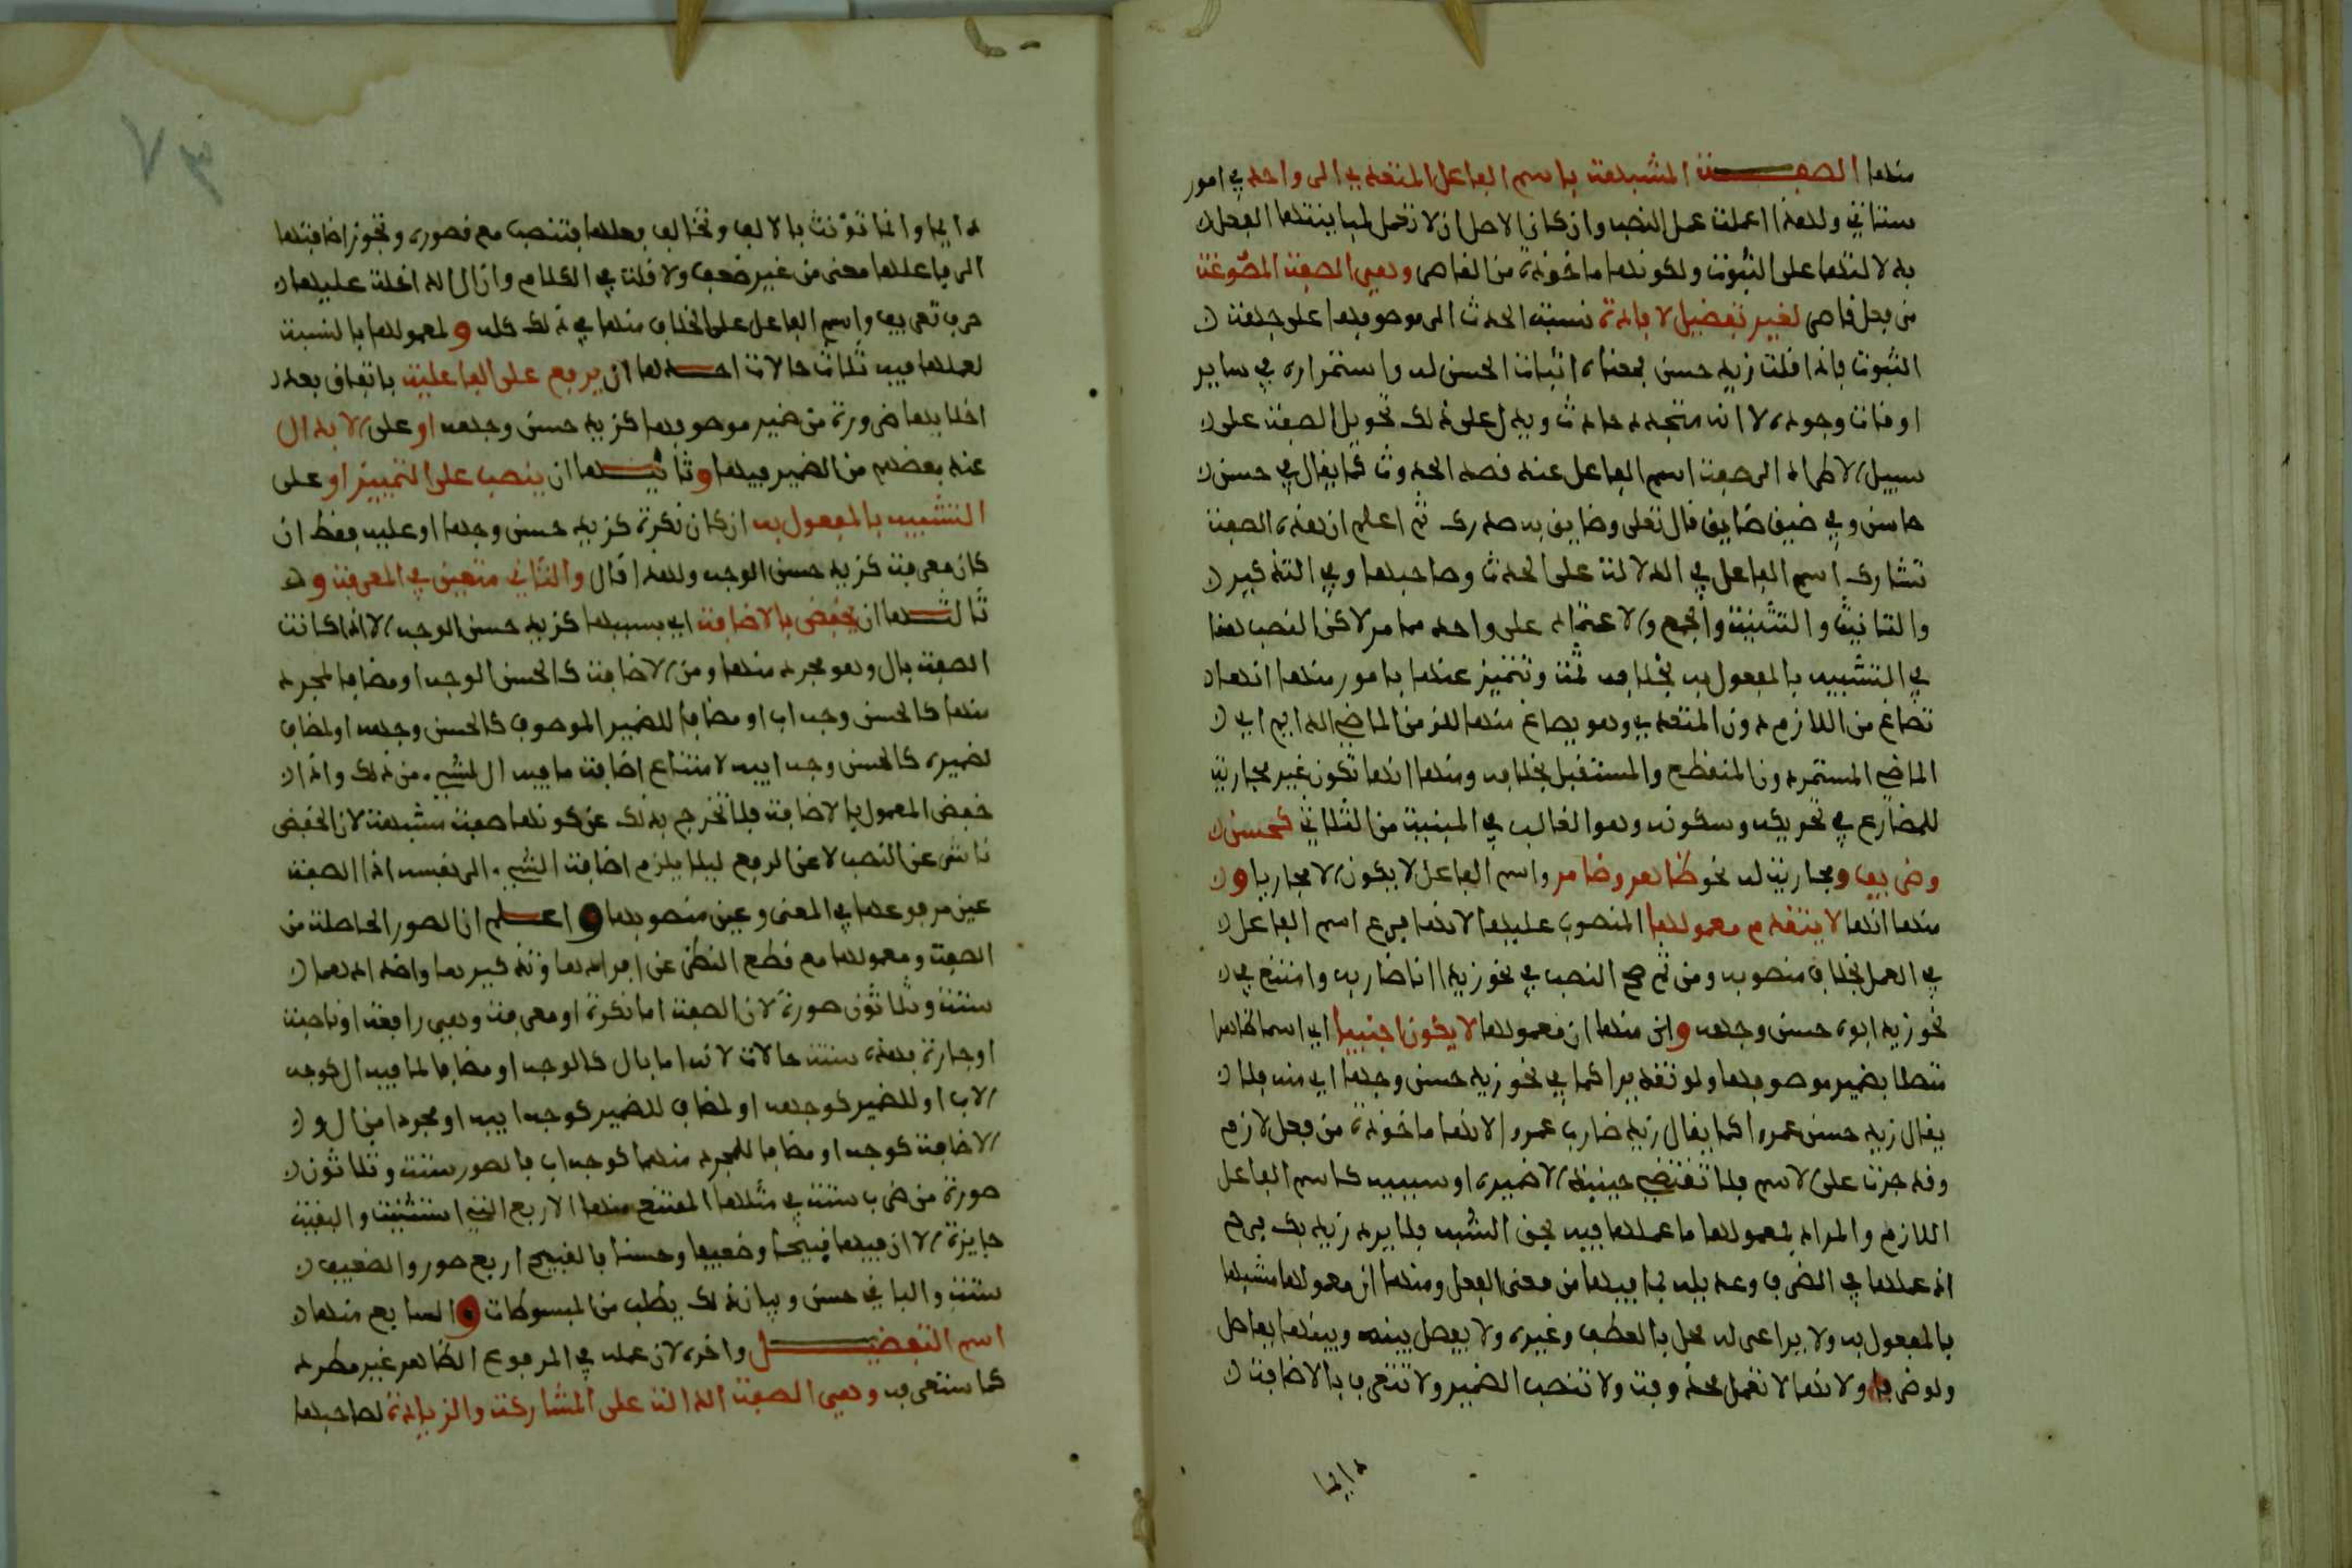 منها الصفة المشبهة باسم الفاعل المتعدي الى واحد في امور
ستاتي ولهذا اعملت عمل النصب وان كان الاصل ان لا تعمل لمباينتها الفعل
بدلالتها على الثبوت ولكونها ماخوذة من القاصر وهي الصفة المصوغة
من فعل قاصر لغير تفضيل لافادة نسبة الحدث الى موصوفها على جهة
الثبوت فاذا قلت زيد حسن فمعناه اثبات الحسن له واستمراره في ساير
اوقات وجوده لا انه متجدد حادث ويدل على ذلك تحويل الصفة على
سبيل الاطراد الى صيغة اسم الفاعل عند قصد الحدوث كما يقال في حسن
حاسن وفي ضيق ضايق قال تعلى وضايق به صدرك ثم اعلم ان هذه الصفة
تشارك اسم الفاعل في الدلالة على الحدث وصاحبها وفي التذكير
والتانيث والتثنية والجمع والاعتماد على واحد مما مر لاكن النصب هنا
في التشبيه بالمفعول به بخلافه ثمة وتتميز عنها بامور منها انها
تصاغ من اللازم دون المتعدي وهو يصاغ منهما للزمن الماضي الدايم اي
الماضي المستمر دون المنقطع والمستقبل بخلافه ومنها انها تكون غير مجارية
للمضارع في تحريكه وسكونه وهو الغالب في المبنية من الثلاثي كحسن
وظريف ومجارية له نحو طاهر وضامر واسم الفاعل لا يكون الا مجاريا و
منها انها لا يتقدم معمولها المنصوب عليها لانها فرع اسم الفاعل
في العمل بخلاف منصوبه ومن ثم صح النصب في نحو زيدا انا ضاربه وامتنع في
نحو زيد ابوه حسن وجهه و منها ان معمولها لا يكون اجنبيا اي اسما ظاهرا
متصلا بضمير موصوفها ولو تقديرا كما في نحو زيد حسن وجها اي منه فلا
يقال زيد حسن عمرا كما يقال زيد ضارب عمرا لانها ماخوذة من فعل لازم
وقد جرت على الاسم فلا تقتضي حينيذ الا ضميره او سببيه كاسم الفاعل
اللازم والمراد بمعمولها ما عملها فيه بحق الشبه فلا يرد زيد بك فرح
اذ عملها في الظرف وعديله لما فيها من معنى الفعل ومنها ان معمولها مشبها
بالمفعول به ولا يراعى له محل بالعطف وغيره ولا يفصل بينه وبينها بفاصل
ولو ظرفا ولانها لا تعمل محذوفة ولا تنصب الضمير ولا تتعرف بالاضافة
دايما
٧٣
دايما وانما تؤنث بالالف وتخالف فعلها فتنصب مع قصوره وتجوز اضافتها
الى فاعلها معنى من غير ضعف ولا قلة في الكلام وان ال الداخلة عليها
حرف تعريف واسم الفاعل على الخلاف منها في ذلك كله و لمعمولها بالنسبة
لعملها فيه ثلاث حالات احدها ان يرفع على الفاعلية باتفاق بعد
اخلايها ضرورة من ضمير موصوفها كزيد حسن وجهه او على الابدال
عند بعضهم من الضمير فيها وثانيها ان ينصب على التمييز او على
التشبيه بالمفعول به ان كان نكرة كزيد حسن وجها او عليه فقط ان
كان معرفة كزيد حسن الوجه ولهذا قال والثاني متعين في المعرفة و
ثالثها ان يخفض بالاضافة اي بسببها كزيد حسن الوجه الا اذا كانت
الصفة بال وهو مجرد منها ومن الاضافة كالحسن الوجه او مضافا لمجرد
منها كالحسن وجه اب او مضافا للضمير الموصوف كالحسن وجهه او لمضاف
لضميره كالحسن وجه ابيه لامتناع اضافة ما فيه ال لشيء من ذلك واذا
خفض المعمول بالاضافة فلا تخرج بذلك عن كونها صفة مشبهة لان الخفض
ناشئ عن النصب لا عن الرفع ليلا يلزم اضافة الشيء الى نفسه اذ الصفة
عين مرفوعها في المعنى وغير منصوبها و اعلم ان الصور الحاصلة من
الصفة ومعمولها مع قطع النظر عن افرادها وتذكيرها واضدادهما
ستة وثلاثون صورة لان الصفة اما نكرة او معرفة وهي رافعة او ناصبة
او جارة فهذه ستة حالات لانه اما بال كالوجه او مضافا لما فيه ال كوجه
الاب او للضمير كوجهه او لمضاف للضمير كوجه ابيه او مجردا من ال و
الاضافة كوجه او مضافا للمجرد منهما كوجه اب فالصور ستة وثلاثون
صورة من ضرب ستة في مثلها الممتنع منها الاربع التي استثنيت والبقية
جايزة الا ان فيها قبيحا وضعيفا وحسنا فالقبيح اربع صور والضعيف
ستة والباقي حسن وبيان ذلك يطلب من المبسوطات و السابع منها
اسم التفضيل واخره لان عمله في المرفوع الظاهر غير مطرد
كما ستعرفه وهي الصفة الدالة على المشاركة والزيادة لصاحبها